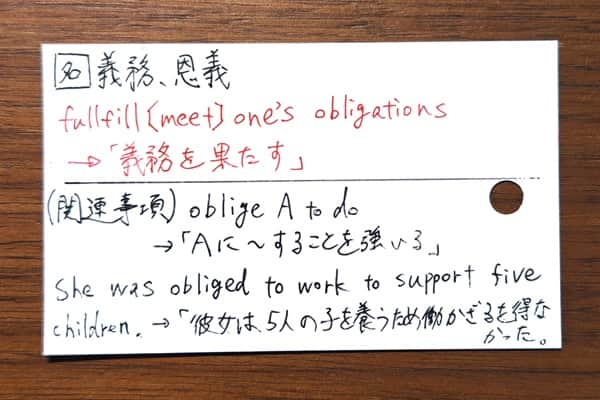 名 義務、恩義
fullfill〔meet〕one's obligations
→「義務を果たす」
(関連事項) oblige A to do
→「Aに〜することを強いる」
She was obliged to work to support five
children. →「彼女は、5人の子を養うため働かざるを得な
かった。